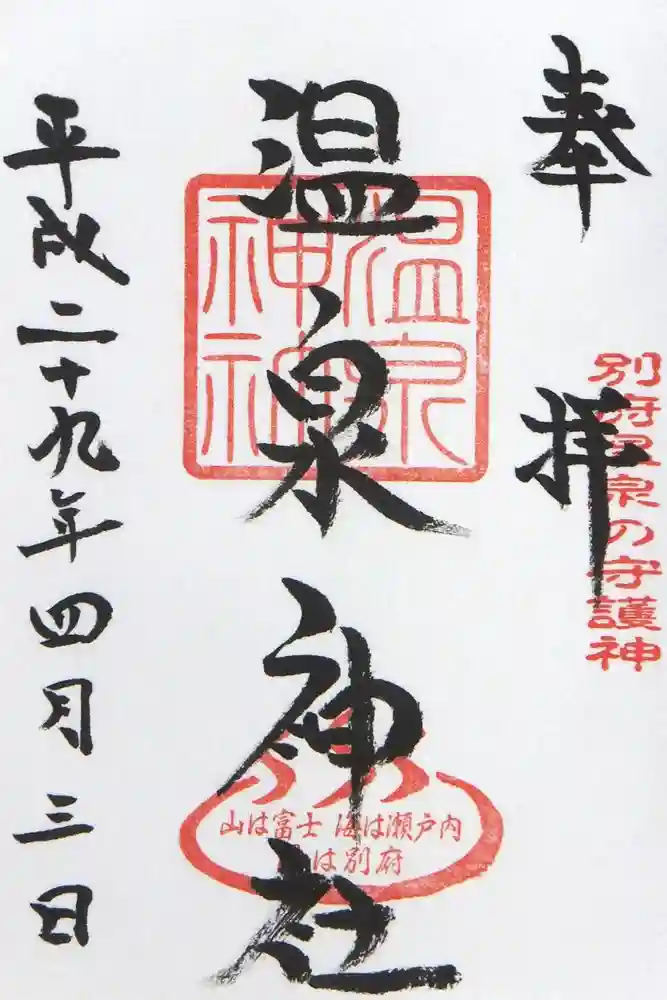 奉拝
別府温泉の守護神
温泉神社
温泉神社
山は富士 海は瀬戸内
は別府
平成二十九年四月三日